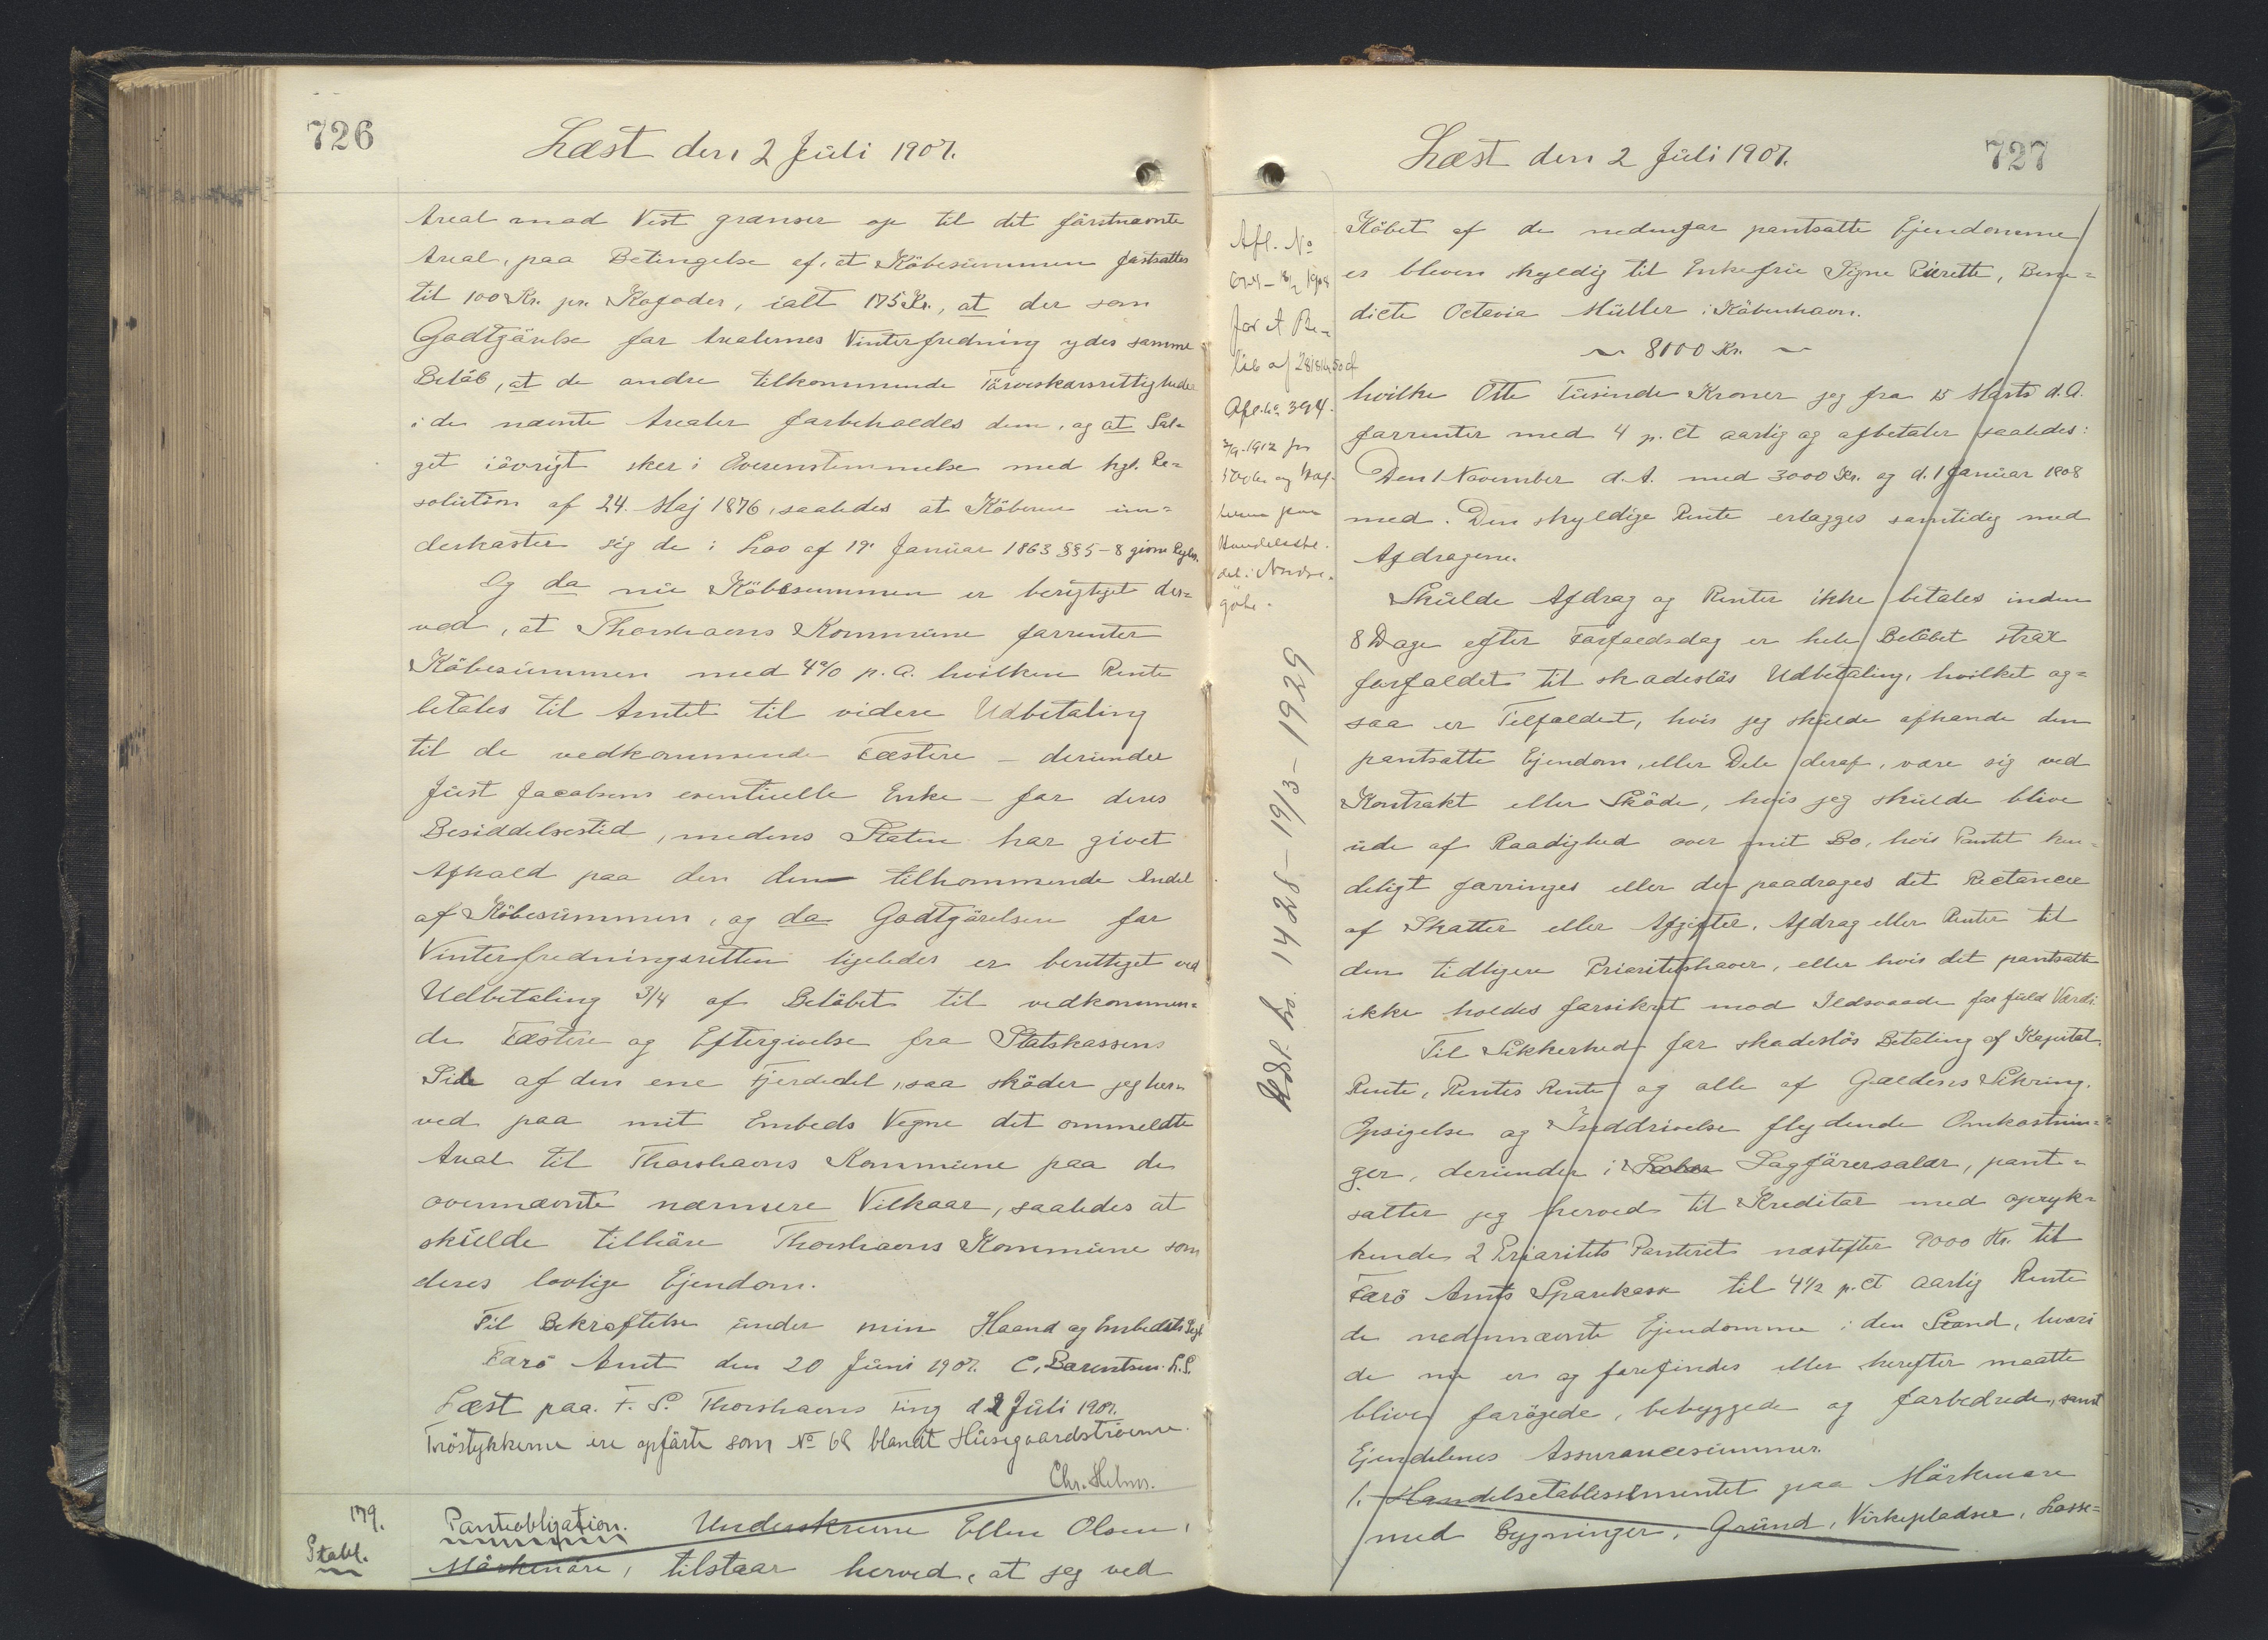 726
Læst den 2 Juli 1907.
Areal mod Vest grænser op til det förstnævnte
Areal, paa Betingelse af, at Köbesummen fastsættes
til 100 Kr. pr. Kofoder, ialt 175 Kr., at der som
Godtgörelse for Arealernes Vinterfredning ydes samme
Belöb, at de andre tilkommende Törveskærsrettigheder
i de nævnte Arealer forbeholdes dem, og at Sal=
get iövrigt sker i Overensstemmelse med kgl. Re=
solution af 24. Maj 1876, saaledes at Köberne un=
derkaster sig de i Lov af 19. Januar 1863 §§ 5-8 givne Regler.
Og da nu Köbesummen er berigtiget der=
ved, at Thorshavns Kommune forrenter
Köbesummen med 4% p.a. hvilken Rente
betales til Amtet til videre Udbetaling
til de vedkommende Fæstere – derunder
Just Jacobsens eventuelle Enke – for deres
Besiddelsestid, medens Staten har givet
Afkald paa den dem tilkommende Andel
af Köbesummen, og da Godtgörelsen for
Vinterfredningsretten ligeledes er berettiget ved
Udbetaling 3/4 af Belöbet til vedkommen=
de Fæstere og Eftergivelse fra Statskassens
Side af den ene Fjerdedel, saa sköder jeg her=
ved paa mit Embeds Vegne det ommeldte
Areal til Thorshavns Kommune paa de
ovennævnte nærmere Vilkaar, saaledes at
skulde tilhöre Thorshavns Kommune som
deres lovlige Ejendom.
Til Bekræftelse under min Haand og Embedets Segl
Færö Amt den 20 Juni 1907. C. Bærentsen. L.S.
Læst paa F. S. Thorshavns Ting d. 2 Juli 1907.
Tröstykkerne ere opförte som No 68 blandt Husegaardströerne.
Chr. Helms.
179.
Stabl.
Panteobligation. Underskrevne Ellen Olsen,
Mörkenöre, tilstaar herved, at jeg ved
727
Læst den 2 Juli 1907.
Afl. No
for et Be=
löb af
Afl. No 394.
1912 for
Handelsste.
det i Nordre=
göte.
Afll. No. 1428 – 19/3 – 1929
Köbet af de nedenfor pantsatte Ejendomme
er bleven skyldig til Enkefrue Signe Pierette, Bene=
dicte Octavia Müller i Köbenhavn.
~ 8000 Kr. ~
hvilke Otte Tusinde Kroner jeg fra 15 Marts d.A.
forrenter med 4 p. Ct aarlig og afbetaler saaledes:
Den 1 November d. A. med 3000 Kr. og d. 1 Januar 1908
med. Den skyldige Rente erlægges samtidig med
Afdragene.
Skulde Afdrag og Renter ikke betales inden
8 Dage efter Forfaldsdag er hele Belöbet strax
forfaldet til skadeslös Udbetaling, hvilket og=
saa er Tilfældet, hvis jeg skulde afhænde den
pantsatte Ejendom, eller Dele deraf, være sig ved
Kontrakt eller Sköde, hvis jeg skulde blive
ude af Raadighed over mit Bo, hvis Pantet ken=
deligt forringes eller der paadrages det Restancer
af Skatter eller Afgifter, Afdrag eller Renter til
den tidligere Prioritetshaver, eller hvis det pantsatte
ikke holdes forsikret mod Ildsvaade for fuld Værdi
Til Sikkerhed for skadeslös Betaling af Kapital,
Rente, Rentes Rente og alle af Gældens Sikring,
Opsigelse og Inddrivelse flydende Omkostnin=
ger, derunder i Salær Sagförersalær, pant=
sætter jeg herved til Kreditor med opryk=
kende 2 Prioritets Panteret næstefter 9000 Kr. til
Færö Amts Sparekasse til 4 1/2 p. Ct aarlig Rente
de nedennævnte Ejendomme i den Stand, hvori
de nu er og forefindes eller herefter maatte
blive forögede, bebyggede og forbedrede, samt
Ejendelenes Assurancesummer.
1. Handelsetablissementet paa Mörkenöre
med Bygninger, Grund, Virkepladser, Losse=